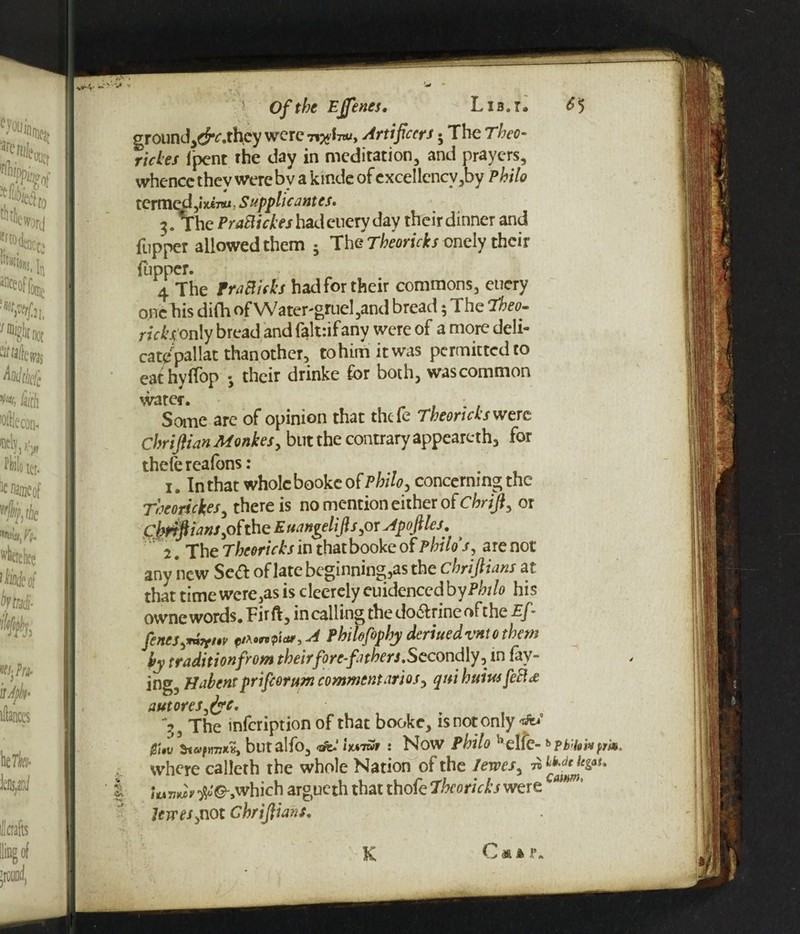 Of the Essenes. LIB.I. 65
ground,&c.they were τεχνῖται, Artificers; The Theo-
rickes spent the day in meditation, and prayers,
whence they were by a kinde of excellency,by Philo
termed,ἱκέται, Supplicantes.
3. The Practickes had euery day their dinner and
supper allowed them ; The Theoricks onely their
supper.
4 The Practicks had for their commons, euery
one his dish of Water-gruel,and bread ; The Theo-
ricks only bread and salt:if any were of a more deli-
cate pallat than other, to him it was permitted to
eat hyssop ; their drinke for both, was common
water.
Some are of opinion that these Theoricks were
Christian Monkes, but the contrary appeareth, for
these reasons :
1. In that whole booke of Philo, concerning the
Theorickes, there is no mention either of Christ, or
Christians,of the Euangelists,or Apostles.
2. The Theoricks in that booke of Philo's, are not
any new Sect of late beginning,as the Christians at
that time were,as is cleerely euidenced by Philo his
owne words. First, in calling the doctrine of the Es-
senes, φιλοσοφίαν, A Philosophy deriued vnto them
by tradition from their fore-fathers.Secondly, in say-
ing, Habent priscorum commentarios, qui huius sectæ
autores,&c.
3, The inscription of that booke, is not only περὶ
βίου θεωρητικοῦ, but also, περὶ ἱκετῶν : Now Philo h else- h Philo in prin.
where calleth the whole Nation of the Iewes, τὸ lib.de legat.
ἱκετικὸν γένος,which argueth that those Theoricks were Caium.
Iewes,not Christians.
K CHAP.